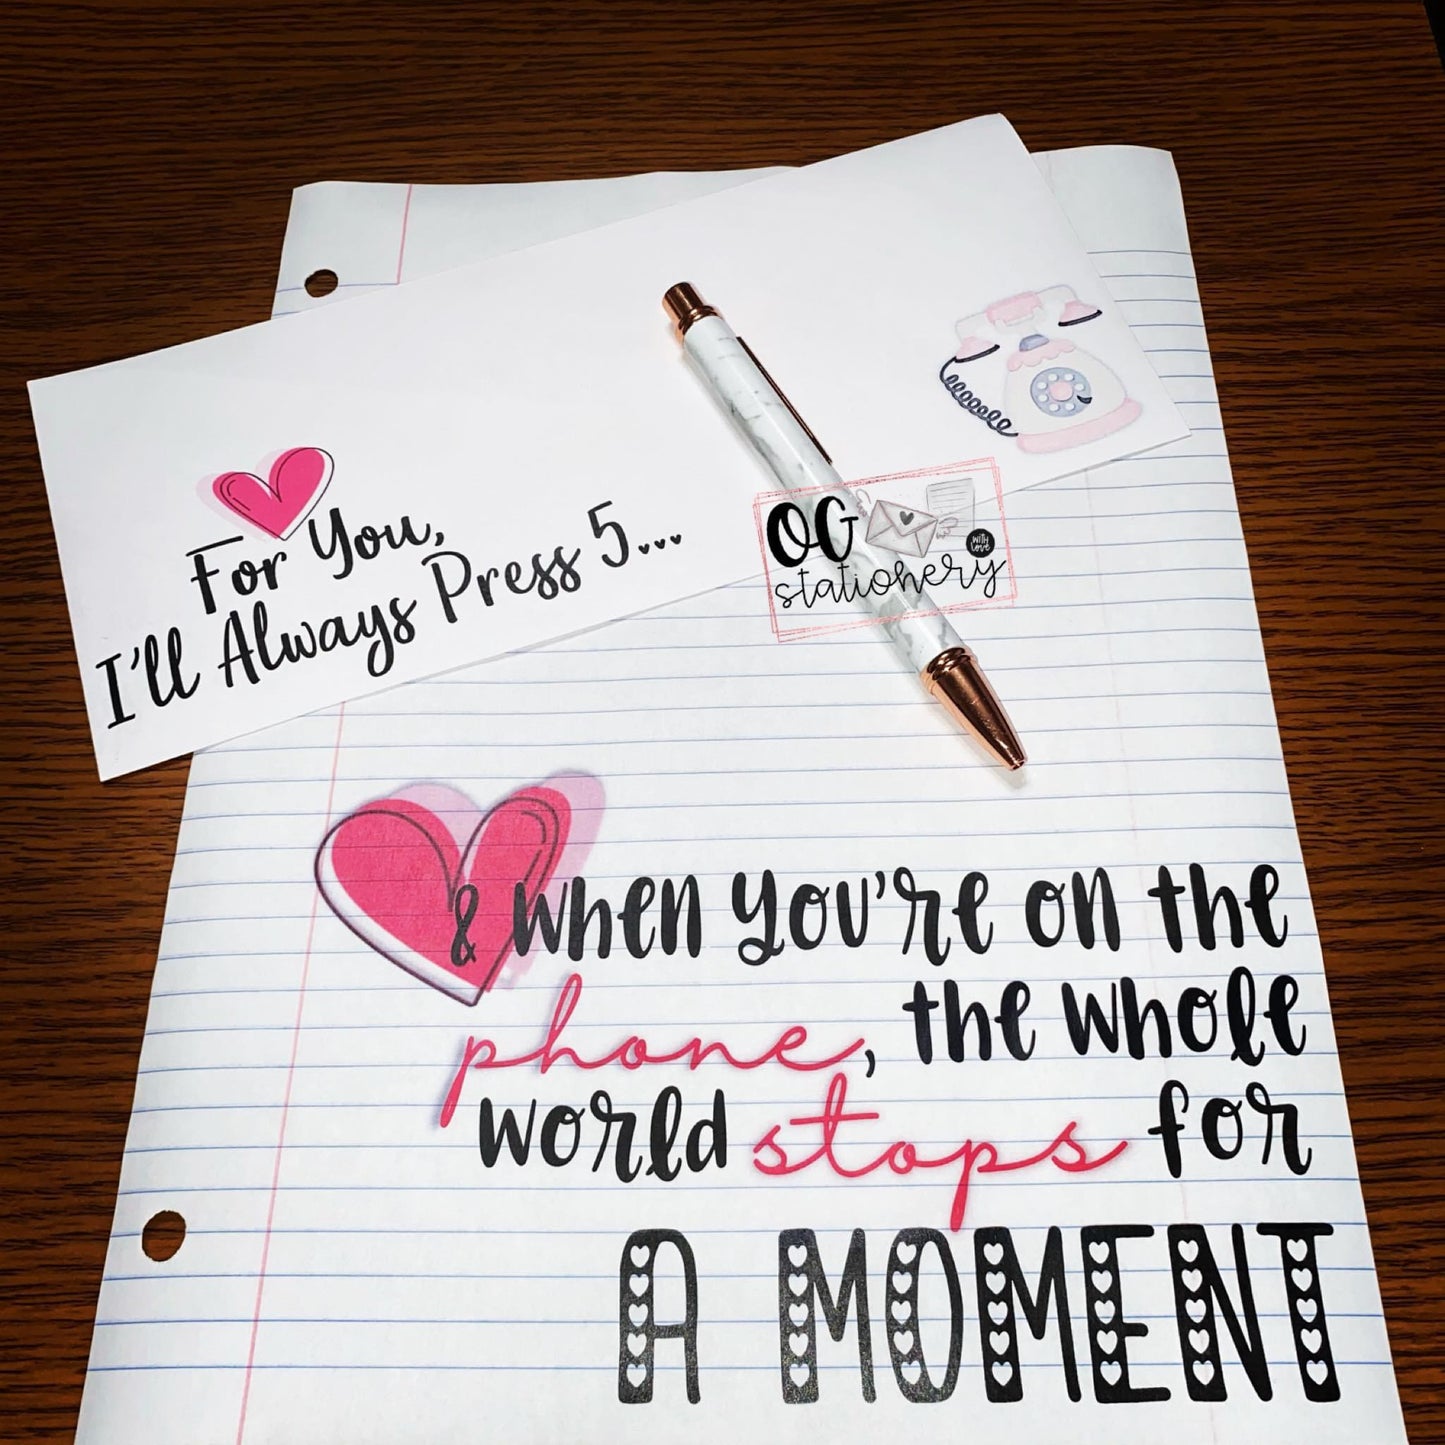 For You,
I'll Always Press 5...
OG
stationery
with
love
& when you're on the
phone, the whole
world stops for
A MOMENT